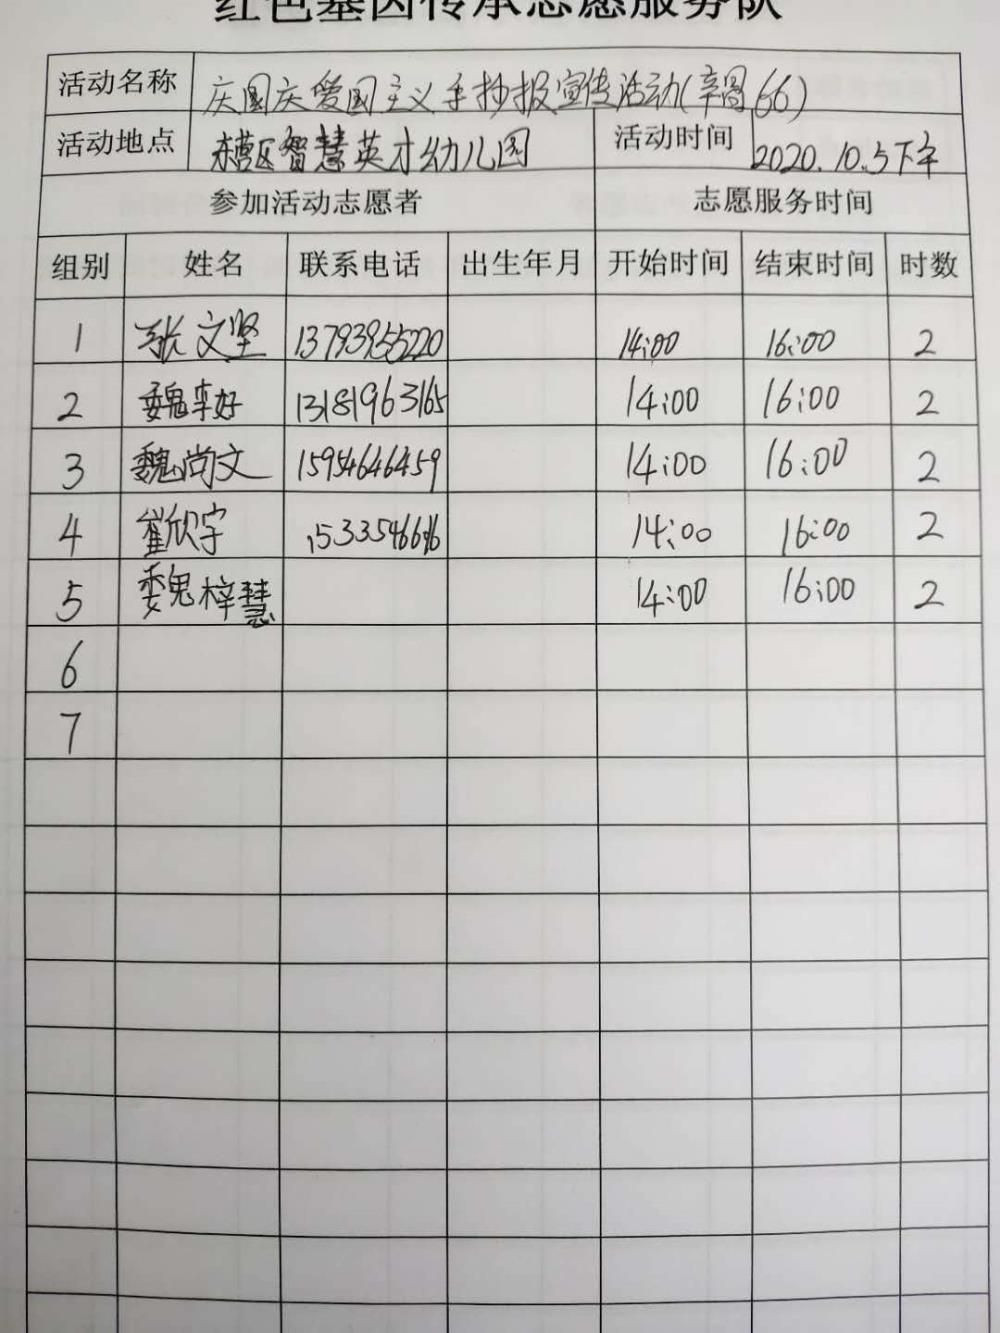 红色基因传承志愿服务队
活动名称 庆国庆爱国主义手抄报宣传活动(辛 66)
活动地点 智慧英才幼儿园 活动时间 2020.10.5下午
参加活动志愿者 志愿服务时间
组别 姓名 联系电话 出生年月 开始时间 结束时间 时数
1 张文坚 13793955220 14:00 16:00 2
2 魏 好 13181963165 14:00 16:00 2
3 魏尚文 15954646459 14:00 16:00 2
4 崔欣宇 14:00 16:00 2
5 魏梓慧 14:00 16:00 2
6
7